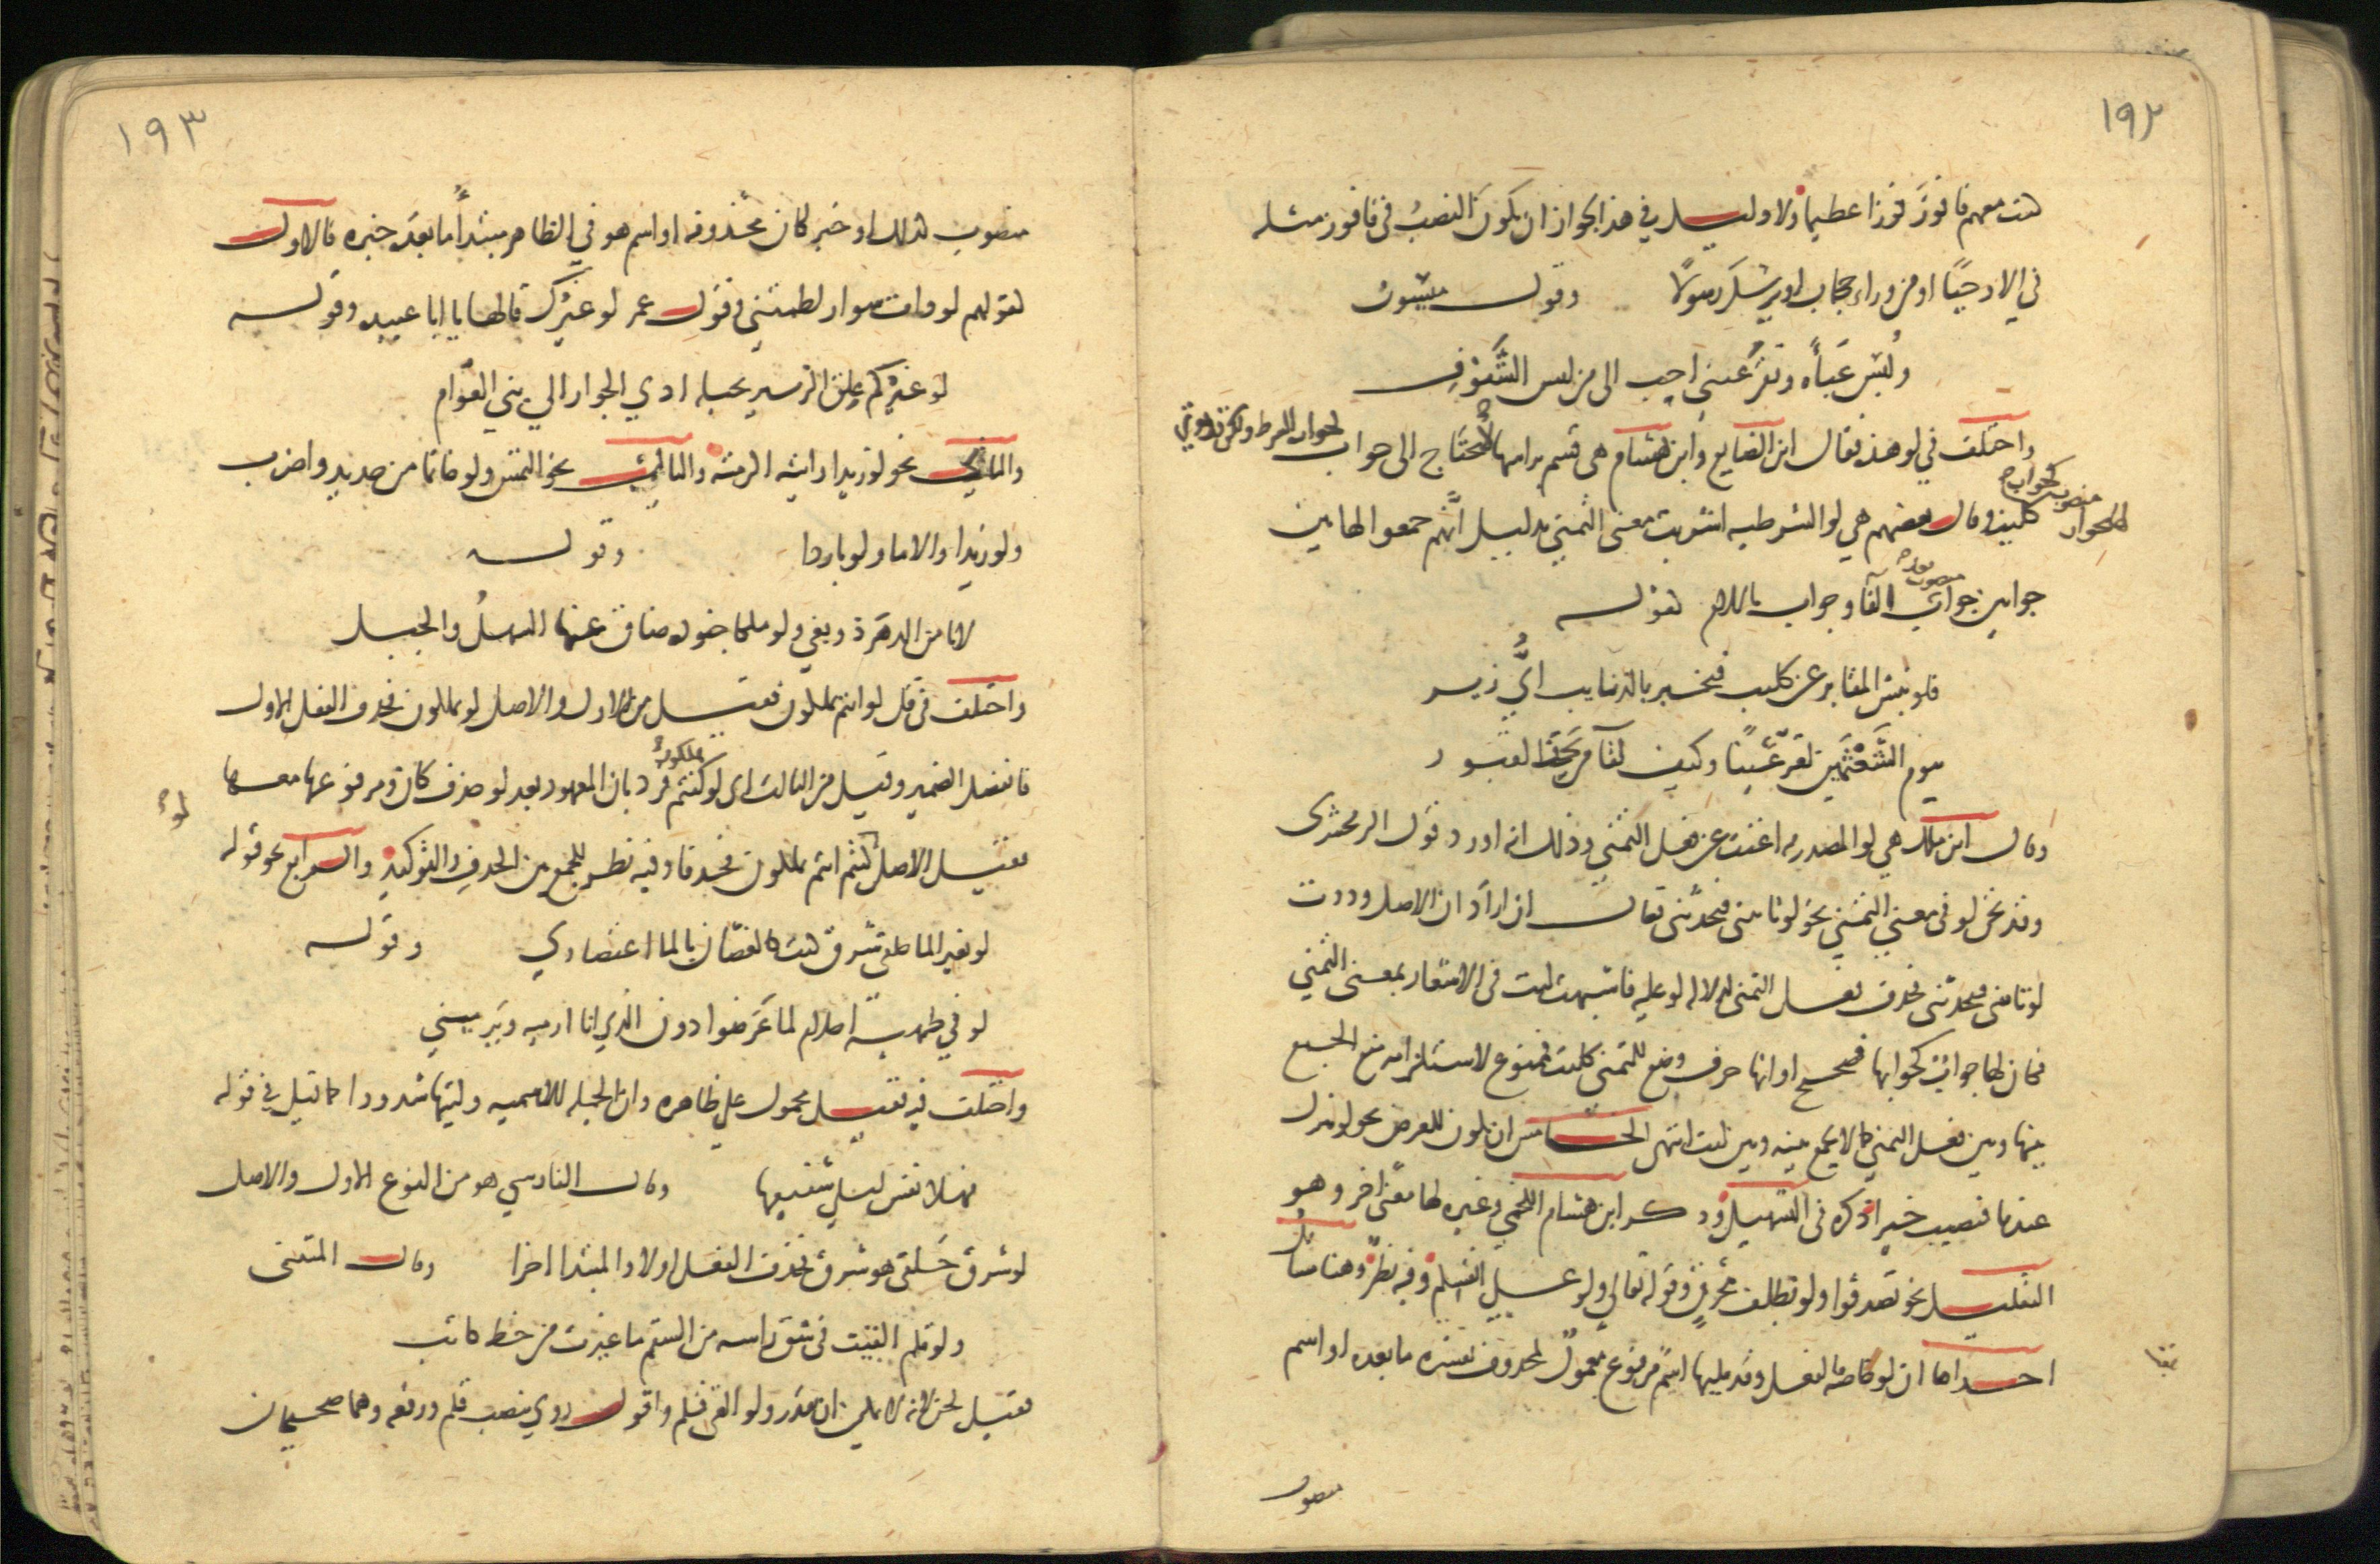 ١٩٢
كنت معهم فافوز فوزا عظيما ولا دليل في هذا لجواز ان يكون النصب فى فافوز مثله
في الا وحيًا او من وراء حجاب او يرسل رسولًا وقول ميسون
ولُبس عَباءَةٍ وتقرَّ عيني احب الى من لبس الشُّفوفِ
واختلف في لو هذه فقال ابن الضايع وابن هشام هى قسم براسها لا تحتاج الى جواب كجواب الشرط ولكن قد يوتى
لها بجواب منصوب كجواب
كليت وقال بعضهم هي لو الشرطيه اشربت معنى التمني بدليل انَّهم جمعوا لها بين
جوابين جواب منصوب بعد الفا وجواب باللام كقوله
فلو نبش المقابر عن كليب فيخبر بالذنايب ايُّ زير
بيوم الشَّعْثَمَين لقرَّ عَينًا وكيف لقآ من تحت القبور
وقال ابن ملك هي لو المصدريه اغنت عن فعل التمني وذلك انه اورد قول الزمخشرى
وقد تجئ لو فى معنى التمني نحو لو تاتيني فتحدثنى فقال ان اراد ان الاصل وددت
لو تاتينى فتحدثنى فحذف فعل التمنى لدلاله لو عليه فاشبهت ليت فى الاشعار بمعنى التمني
فكان لها جواب كجوابها فصحيح او انها حرف وضع للتمنى كليت فممنوع لاستلزامه منع الجمع
بينها وبين فعل التمني كما لا يجمع بينه وبين ليت انتهى الخامس ان تكون للعرض نحو لو تنزل
عندنا فتصيب خيرا ذكره فى التسهيل وذكر ابن هشام اللخمي وغيره لها معنى اخر وهو
التقليل نحو تصدقوا ولو بظلف محرق وقوله تعالى ولو على انفسكم وفيه نظر وهنا مسائل
احداها ان لو خاصه بالفعل وقد يليها اسم مرفوع معمول لمحذوف يفسره ما بعده او اسم
منصوب
١٩٣
منصوب كذلك او خبر لكان محذوفه او اسم هو في الظاهر مبتدأ ما بعده خبره فالاول
كقولهم لو ذات سوار لطمتني وقول عمر لو غيرك قالها يا ابا عبيده وقوله
لو غيركم علق الزبير بحبله ادي الجوار الي بني العوّام
والثاني نحو لو زيدا رايته اكرمته والثالث نحو التمس ولو خاتما من حديد واضرب
ولو زيدا والا ما ولو باردا وقوله
لا يامن الدهر ذو بغي ولو ملكا جنوده ضاق عنها السهلُ والجبل
واختلف في قل لو انتم تملكون فقيل من الاول والاصل لو تملكون فحذف الفعل الاول
فانفصل الضمير وقيل من الثالث اى لو كنتم تملكون ورد بان المعهود بعد لو حذف كان ومرفوعها معها
فقيل الاصل لو كنتم انتم تملكون فحذفا وفيه نظر للجمع بين الحذف والتوكيد والرابع نحو قوله
لو بغير الما حلقى شرق كنت كالغصّان بالما اعتصاري وقوله
لو في طهية احلام لما عَرَضوا دون الذي انا ارميه ويَرميني
واختلف فيه فقيل محمول علي ظاهره وان الجمله الاسميه وليتها شذوذا كما قيل في قوله
فهلا نفس ليلي شفيعها وقال الفارسي هو من النوع الاول والاصل
لو شرق حَلقى هو شرق فحذف الفعل اولا والمبتدا اخرا وقال المتنبى
ولو قلم القيت فى شق راسه من السقم ما غيرت من خط كاتب
فقيل لحن لانه لا يمكن ان يقدر ولو القى قلم واقول روي بنصب قلم ورفعه وهما صحيحان